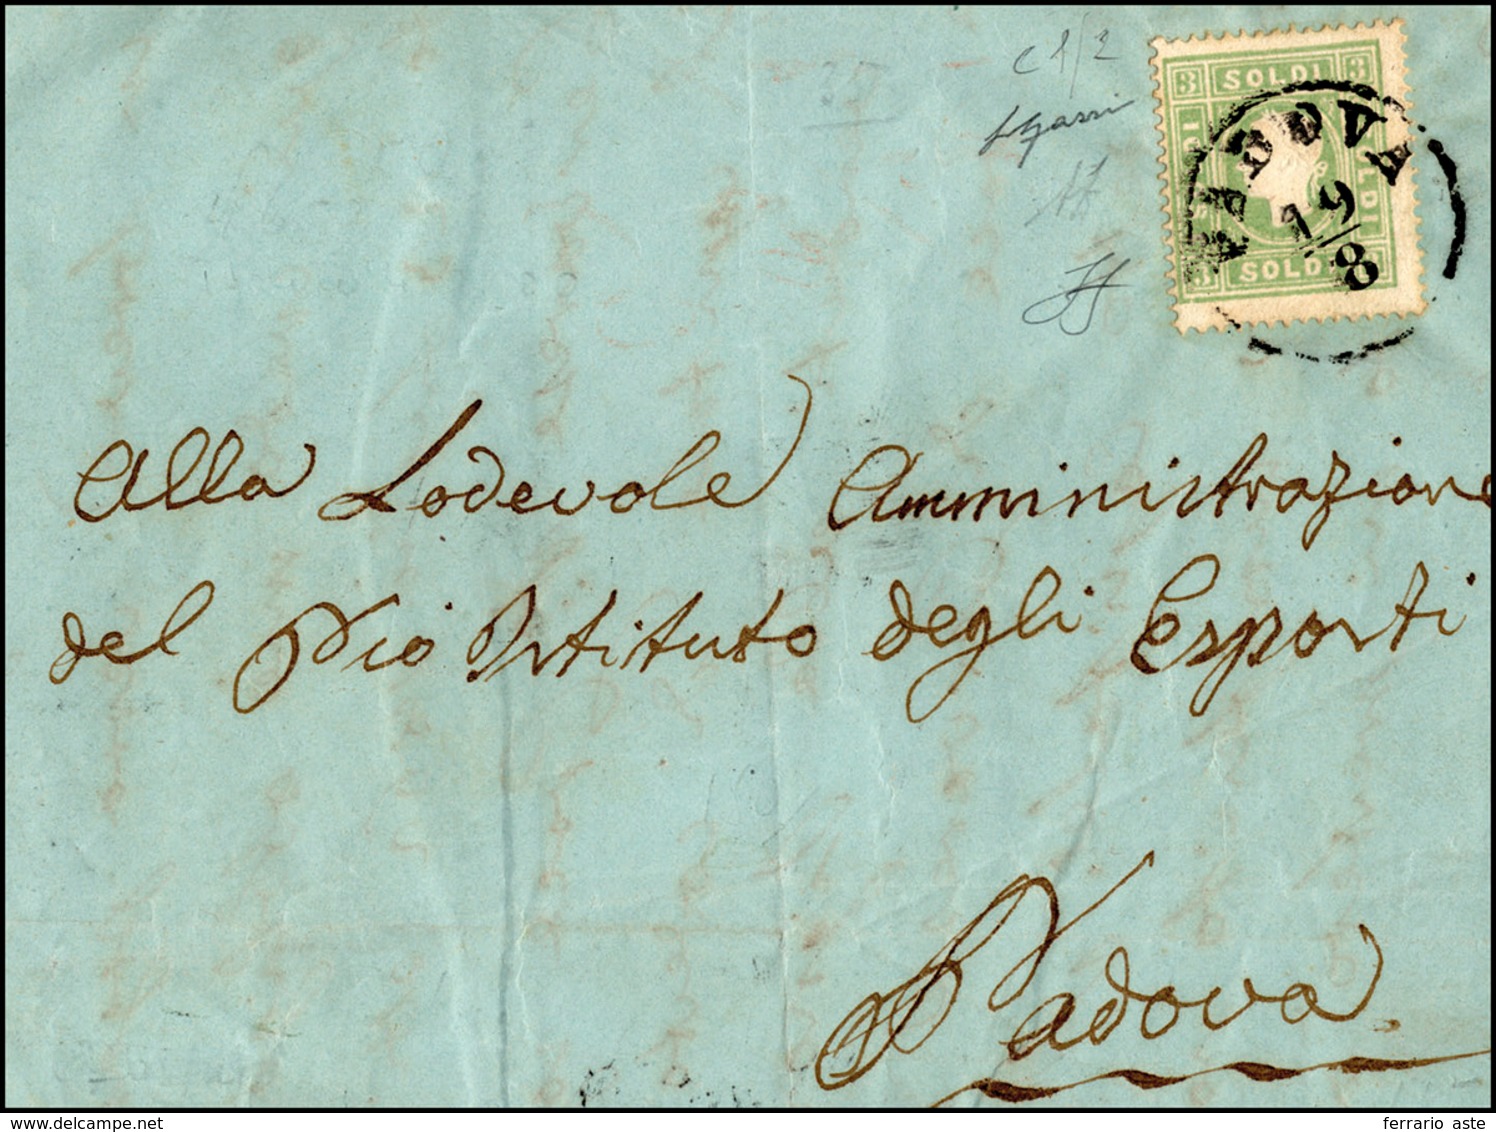 C 1/2
3 SOLDI 3
PADOVA
19/8
3 SOLDI 3
Alla Lodevole Amministrazione
del Pio Istituto degli Esposti
Padova
delcampe.net
ferrario aste